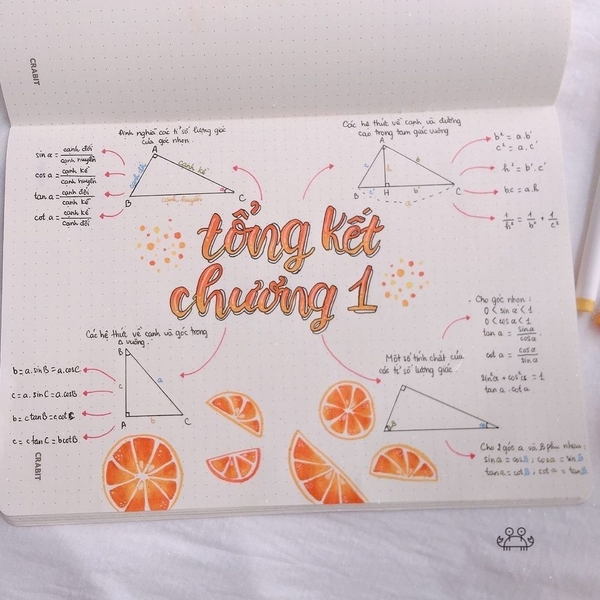 CRABIT
Định nghĩa các tỉ số lượng giác
của góc nhọn
sin α = cạnh đối / cạnh huyền
cos α = cạnh kề / cạnh huyền
tan α = cạnh đối / cạnh kề
cot α = cạnh kề / cạnh đối
A
cạnh đối
cạnh kề
α
B
cạnh huyền
C
Các hệ thức về cạnh và đường
cao trong tam giác vuông
A
c
h
b
B
c'
H
b'
C
a
b² = a.b'
c² = a.c'
h² = b'.c'
bc = a.h
1/h² = 1/b² + 1/c²
tổng kết
chương 1
Các hệ thức về cạnh và góc trong
Δ vuông
B
c
a
A
b
C
b = a.sinB = a.cosC
c = a.sinC = a.cosB
b = c tanB = c cot C
c = b tanC = b cot B
Một số tính chất của
các tỉ số lượng giác
B
α
. Cho góc nhọn :
0 < sin α < 1
0 < cos α < 1
tan α = sin α / cos α
cot α = cos α / sin α
sin²α + cos²α = 1
tan α . cot α
Cho 2 góc α và B phụ nhau :
sin α = cos B ; cos α = sin B
tan α = cot B ; cot α = tan B
CRABIT